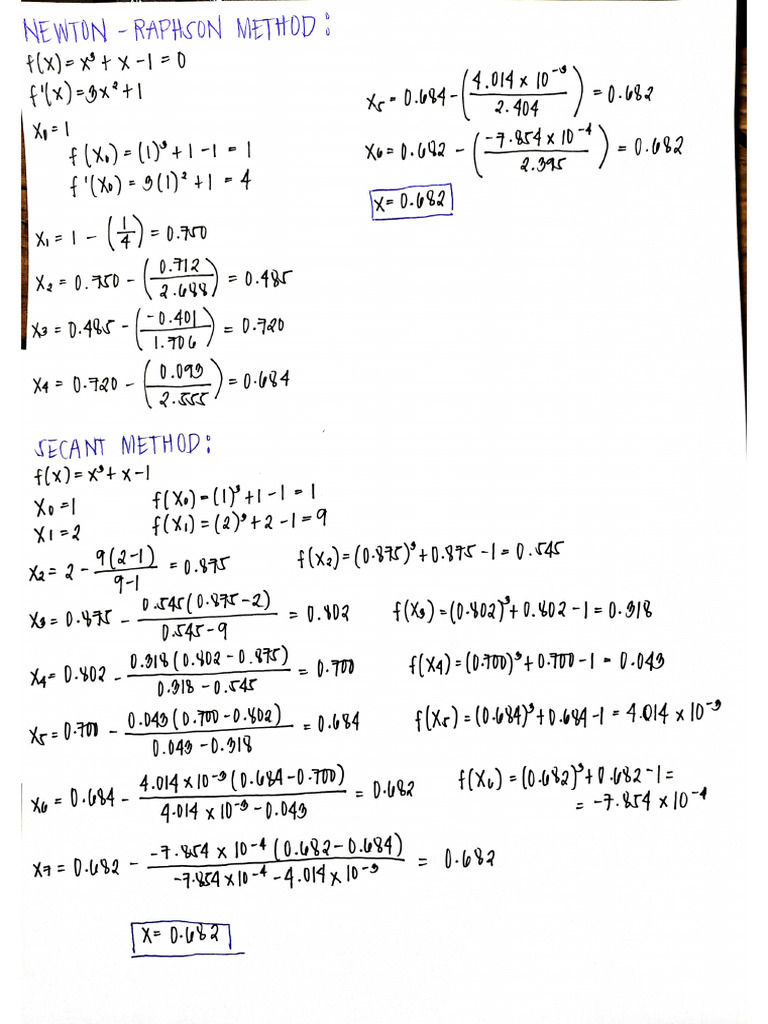 NEWTON - RAPHSON METHOD:
f(x) = x³ + x - 1 = 0
f'(x) = 3x² + 1
x₀ = 1
f(x₀) = (1)³ + 1 - 1 = 1
f'(x₀) = 3(1)² + 1 = 4
x₁ = 1 - (1/4) = 0.750
x₂ = 0.750 - (0.712/2.688) = 0.485
x₃ = 0.485 - (-0.401/1.706) = 0.720
x₄ = 0.720 - (0.093/2.555) = 0.684
x₅ = 0.684 - (4.014 x 10⁻³/2.404) = 0.682
x₆ = 0.682 - (-7.854 x 10⁻⁴/2.395) = 0.682
x = 0.682
SECANT METHOD:
f(x) = x³ + x - 1
x₀ = 1 f(x₀) = (1)³ + 1 - 1 = 1
x₁ = 2 f(x₁) = (2)³ + 2 - 1 = 9
x₂ = 2 - 9(2-1)/9-1 = 0.875 f(x₂) = (0.875)³ + 0.875 - 1 = 0.545
x₃ = 0.875 - 0.545(0.875-2)/0.545-9 = 0.802 f(x₃) = (0.802)³ + 0.802 - 1 = 0.318
x₄ = 0.802 - 0.318(0.802-0.875)/0.318-0.545 = 0.700 f(x₄) = (0.700)³ + 0.700 - 1 = 0.043
x₅ = 0.700 - 0.043(0.700-0.802)/0.043-0.318 = 0.684 f(x₅) = (0.684)³ + 0.684 - 1 = 4.014 x 10⁻³
x₆ = 0.684 - 4.014 x 10⁻³(0.684-0.700)/4.014 x 10⁻³ - 0.043 = 0.682 f(x₆) = (0.682)³ + 0.682 - 1 =
= -7.854 x 10⁻⁴
x₇ = 0.682 - -7.854 x 10⁻⁴(0.682-0.684)/-7.854 x 10⁻⁴ - 4.014 x 10⁻³ = 0.682
x = 0.682